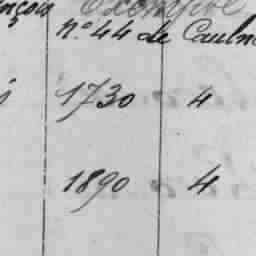 nçois Exempire
n.º 44 de Cauln
1730 4
1890 4